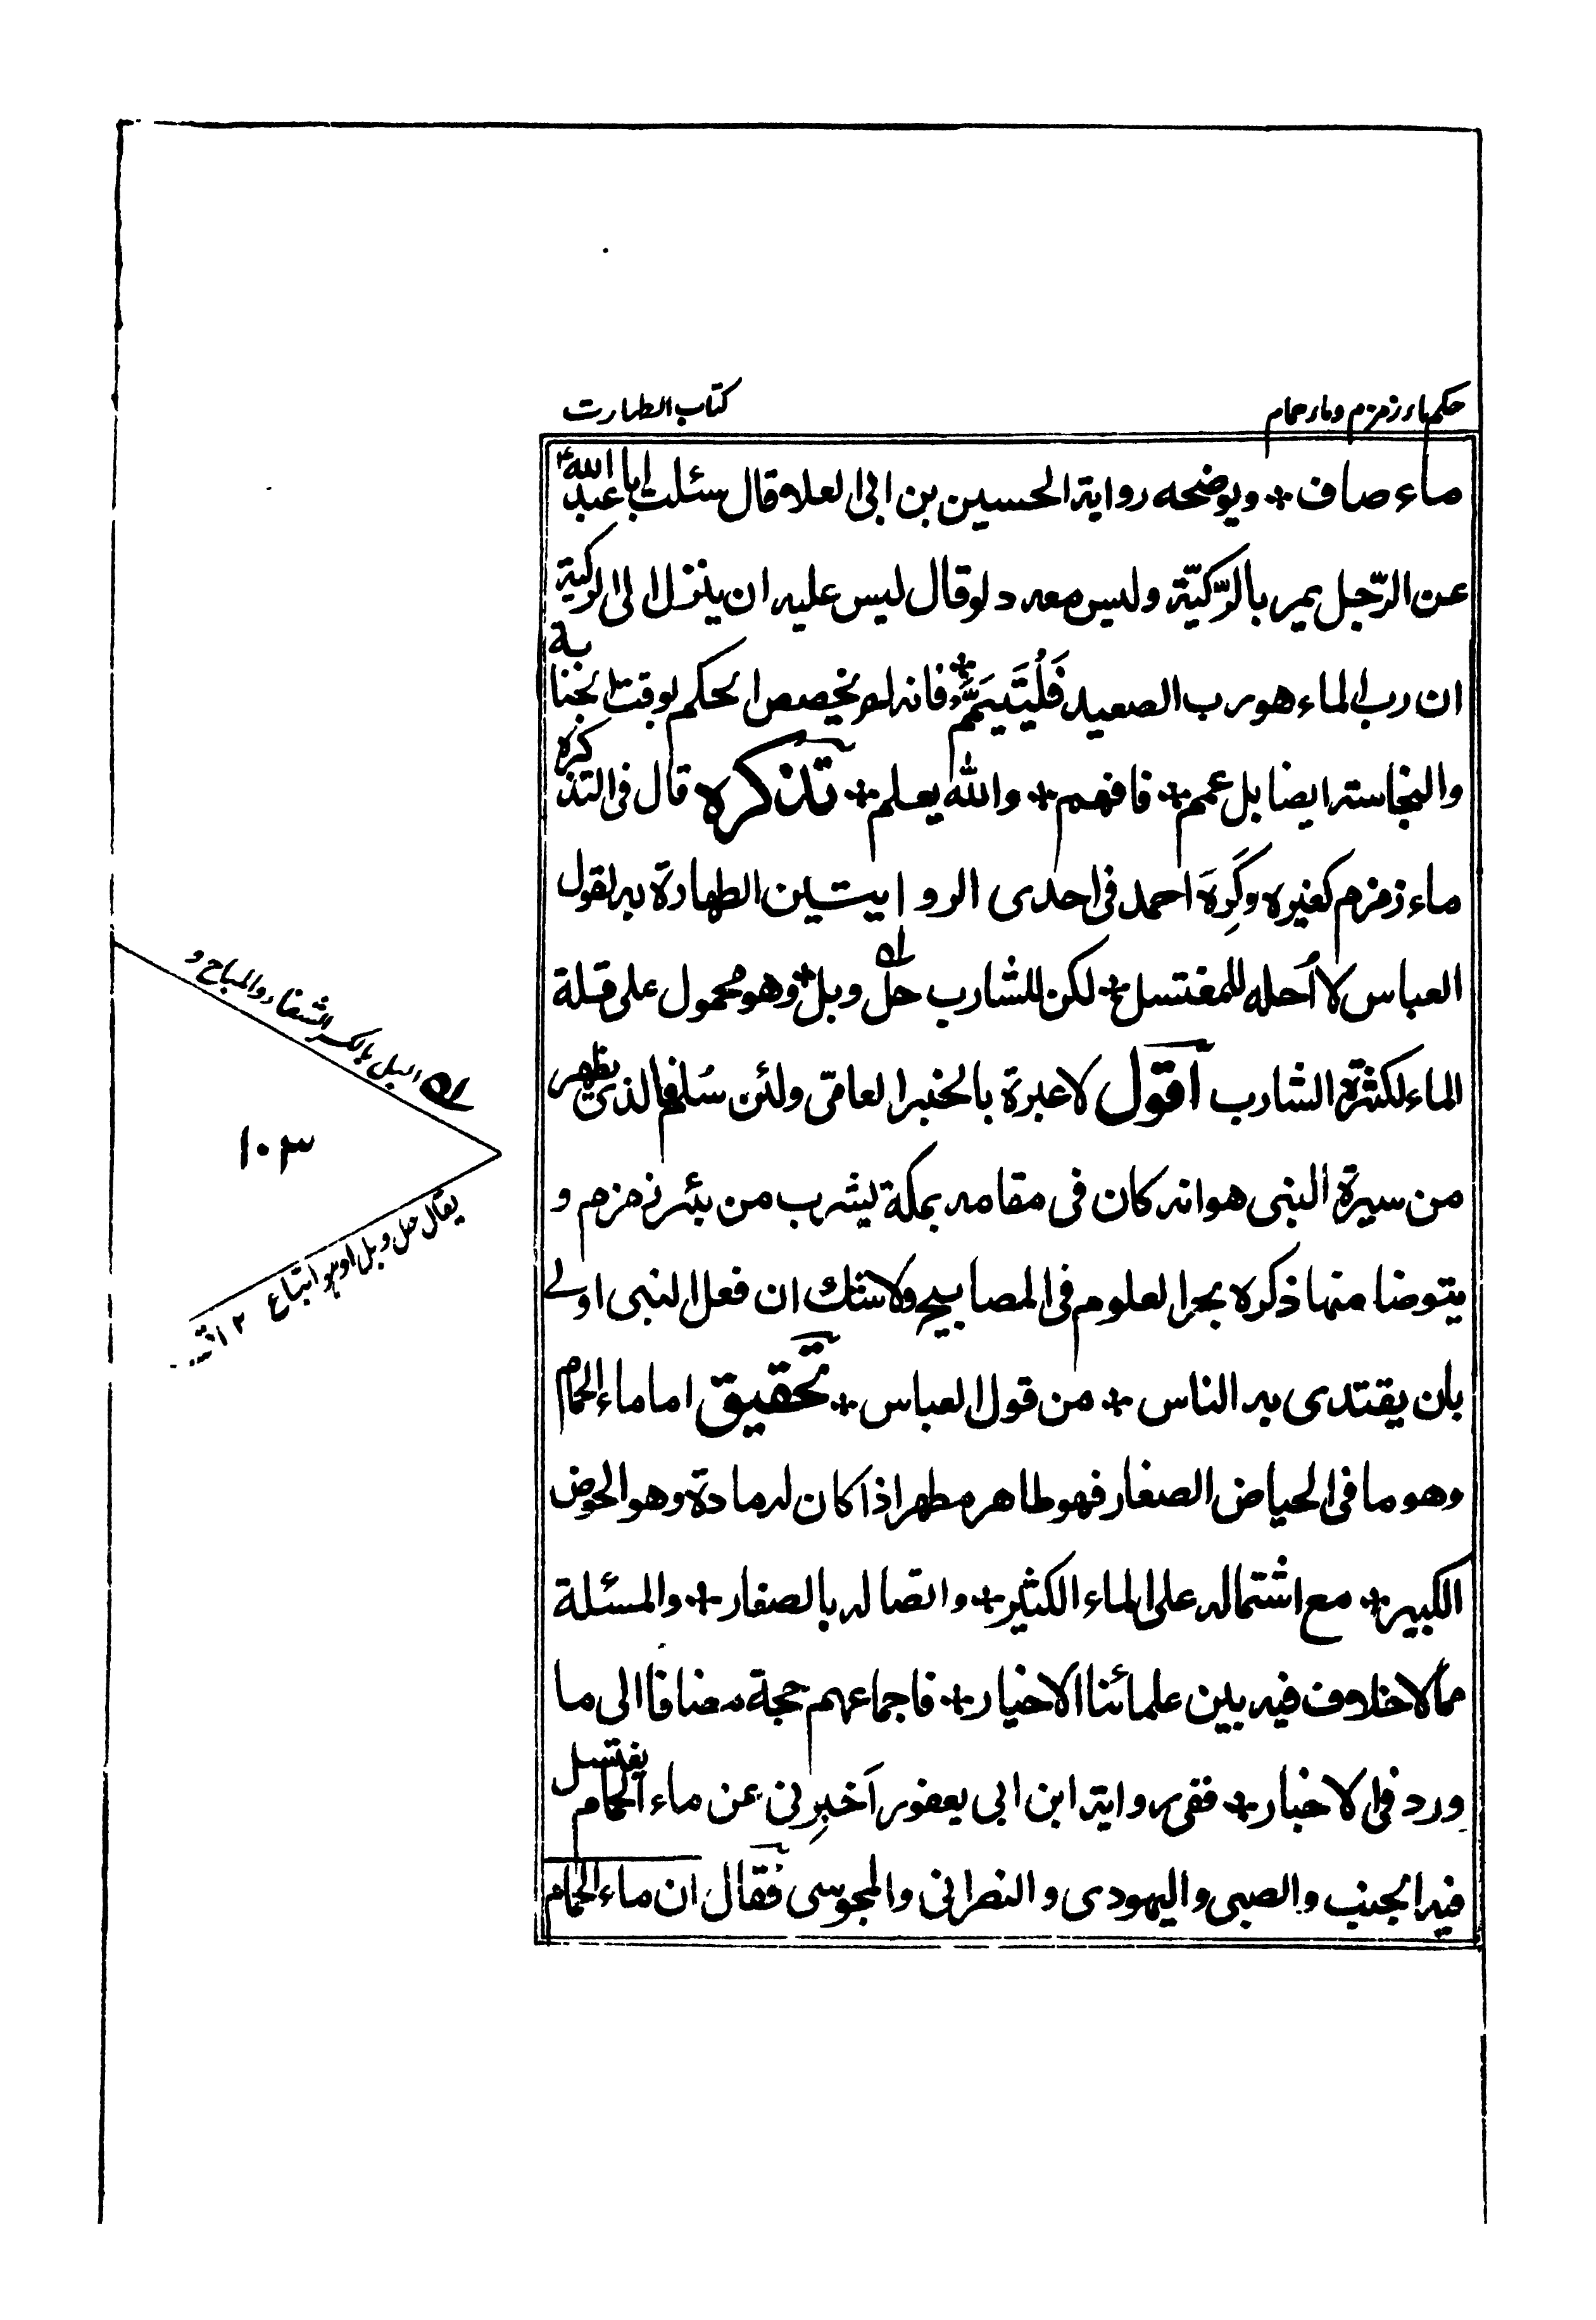 حكم ماء زمزم وماء حمام
كتاب الطهارت
ماء صاف * ويوضحه رواية الحسين بن ابى العلاء قال سئلت ابا عبد الله ع
عن الرّجل يمر بالرّكيّة وليس معه دلو قال ليس عليه ان ينزل الى الركية
ان رب الماء هو رب الصعيد فَلْيَتَيَمَّمْ * فانه لم يخصص الحكم لوقت الجنابة
والنجاسة ايضا بل عمم * فافهم * والله يعلم * تذكره قال فى التذكره
ماء زمزم كغيره وكَرِهَ احمد فى احدى الروايتين الطهارة به لقول
العباس لا اُحله للمغتسل * لكن للشارب حل وبل * وهو محمول على قلة
الماء لكثرة الشارب اقول لا عبرة بالخبر العامّى ولئن سُلم فالذى يظهر
من سيرة النبى هو انه كان فى مقامه بمكة يشرب من بئر زمزم و
يتوضا منها ذكره بحر العلوم فى المصابيح ولا شك ان فعل النبى اولى
بان يقتدى به الناس * من قول العباس * تحقيق اما ماء الحمام
وهو ما فى الحياض الصغار فهو طاهر مطهر اذا كان له مادة وهو الحوض
الكبير * مع اشتماله على الماء الكثير * واتصاله بالصغار * والمسئلة
مما لا خلاف فيه بين علمائنا الاخيار * فاجماعهم حجة مضافا الى ما
ورد فى الاخبار * ففى رواية ابن ابى يعفور اَخبِرنى عن ماء الحمام يغتسل
فيه الجنب والصبى واليهودى والنصرانى والمجوسى فقال ان ماء الحمام
البل بالكسر الشفاء والمباح و
١٠٣
يقال حل وبل او هو اتباع ١٢